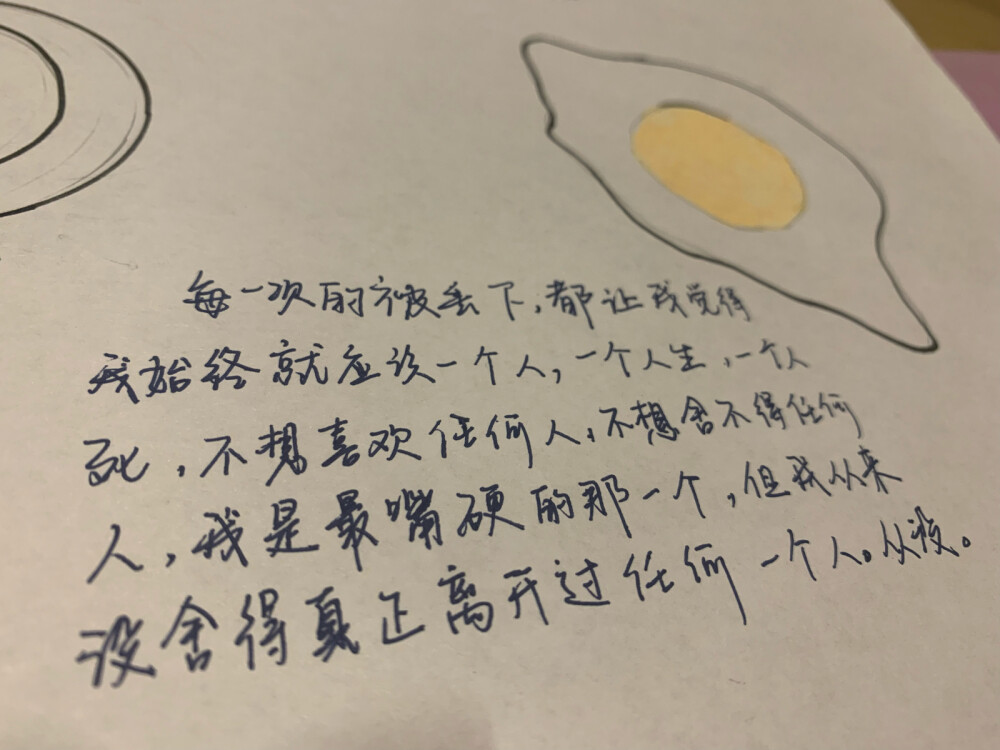 每一次的被丢下，都让我觉得
我始终就应该一个人，一个人生，一个人
死，不想喜欢任何人，不想舍不得任何
人，我是最嘴硬的那一个，但我从来
没舍得真正离开过任何一个人。从没。